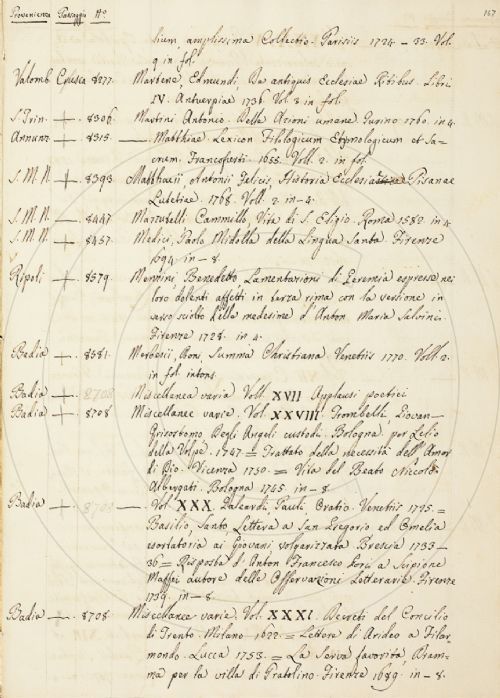 Provenienza Passaggi N.° 167
lium, amplissima Collectio. Parisiis 1724 - 33. Vol.
9 in fol.
Valomb. Crusca 8277. Martene, Edmundi. De antiquis Ecclesiae Ritibus. Libri
IV. Antuerpiae 1736. Vol. 3. in fol.
S. Trin. - + - 8306. Martini Antonio. Delle Azioni umane. Turino 1760. in 4.
Annunz. - + - 8315. —— Matthiae. Lexicon Filologicum Etymologicum et Sa-
crum. Francofurti. 1655. Voll. 2. in fol.
S. M. N. - + - 8393 Matthaeii, Antonii Felicis, Historia Ecclesiae Pisanae
Lucae 1768. Voll. 2. in - 4.
S. M. N. - + - 8447 Mazzutelli Cammillo, Vita di S. Eligio. Roma 1582. in 4.
S. M. N. - + - 8457. Medici, Paolo, Midolla della Lingua Santa. Firenze
1694. in - 8.
Ripoli - + - 8579. Menzini, Benedetto, Lamentazioni di Geremia espresse nei
loro dolenti affetti in terza rima con la versione in
verso sciolto delle medesime d'Anton Maria Salvini.
Firenze 1728. in 4.
Badia - + - 8581. Summa Christiana. Venetiis 1770. Voll. 2.
in fol. intons.
Badia - + - 8708 Miscellanea varia Voll. XVII Applausi poetici
Badia - + - 8708 Miscellanee varie. Vol. XXVIII. Trombelli, Giovan-
Grisostomo. Degli Angeli custodi. Bologna, per Lelio
della Volpe. 1747 = Trattato della necessità dell'Amor
di Dio. Vicenza 1750. = Vita del Beato Niccolò
Albergati. Bologna 1745. in - 8.
Badia - + - 8708 —— Vol. XXX. Oratio. Venetiis 1795. =
Basilio, Santo Lettera a San Gregorio ed Omelia
esortatoria ai Giovani volgarizzata Brescia 1733 -
36 = Risposta d'Anton Francesco Gori a Scipione
Maffei autore delle Osservazioni Letterarie. Firenze
1739. in - 8.
Badia - + - 8708 Miscellanea varia. Vol. XXXI. Decreti del Concilio
di Trento. Milano 1622. = Lettere di Arideo a Filar-
mondo. Lucca 1753. = La Serva favorita, Dram-
ma per la villa di Pratolino. Firenze 1689. in - 8.